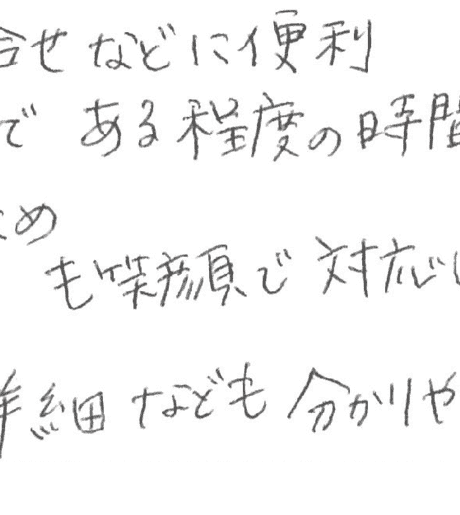 合せなどに便利
で ある程度の時間
ため
も笑顔で対応し
詳細なども分かりや